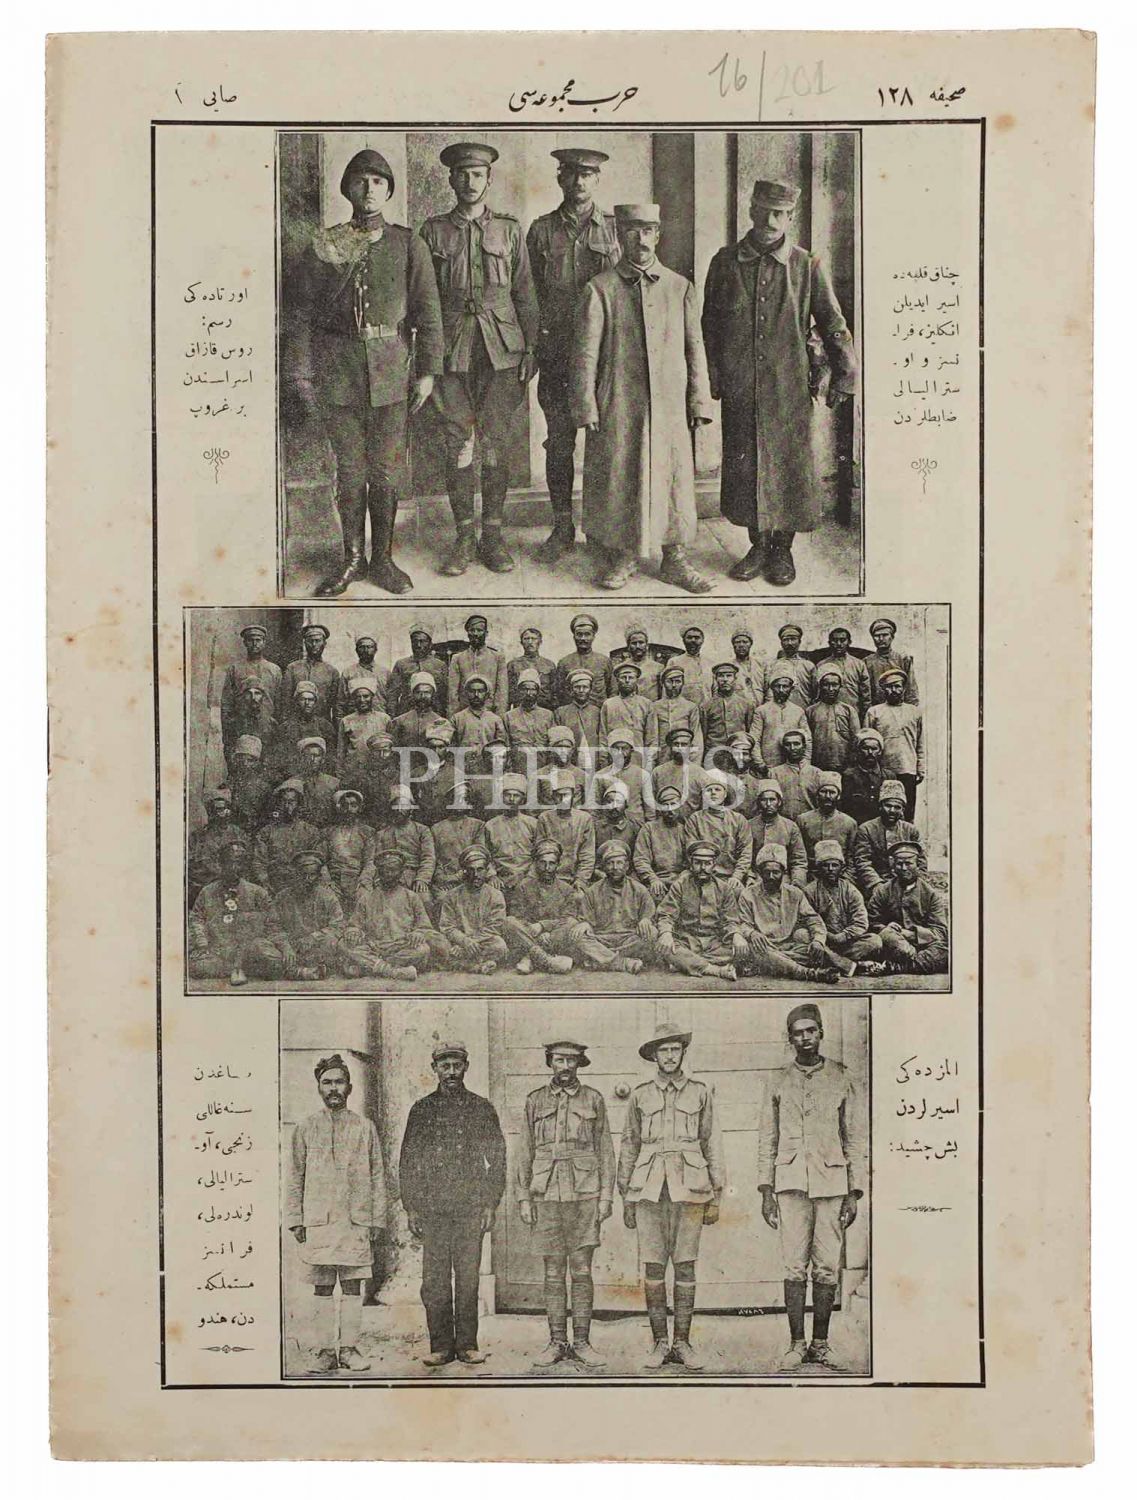 صحیفه ١٢٨
حرب مجموعه‌سی
صایی
16/201
چناق قلعه‌ده
اسیر ایدیلن
انكلیز، فرا-
نسز و او-
سترالیالی
ضابطلردن
اورتاده‌كی
رسم:
روس قازاق
اسراسندن
بر غروپ
PHEBUS
المزده‌كی
اسیرلردن
بش چشید:
صاغدن
سنه‌غاللی
زنجی، آو-
سترالیالی،
لوندره‌لی،
فرانسز
مستملكه-
دن، هندو